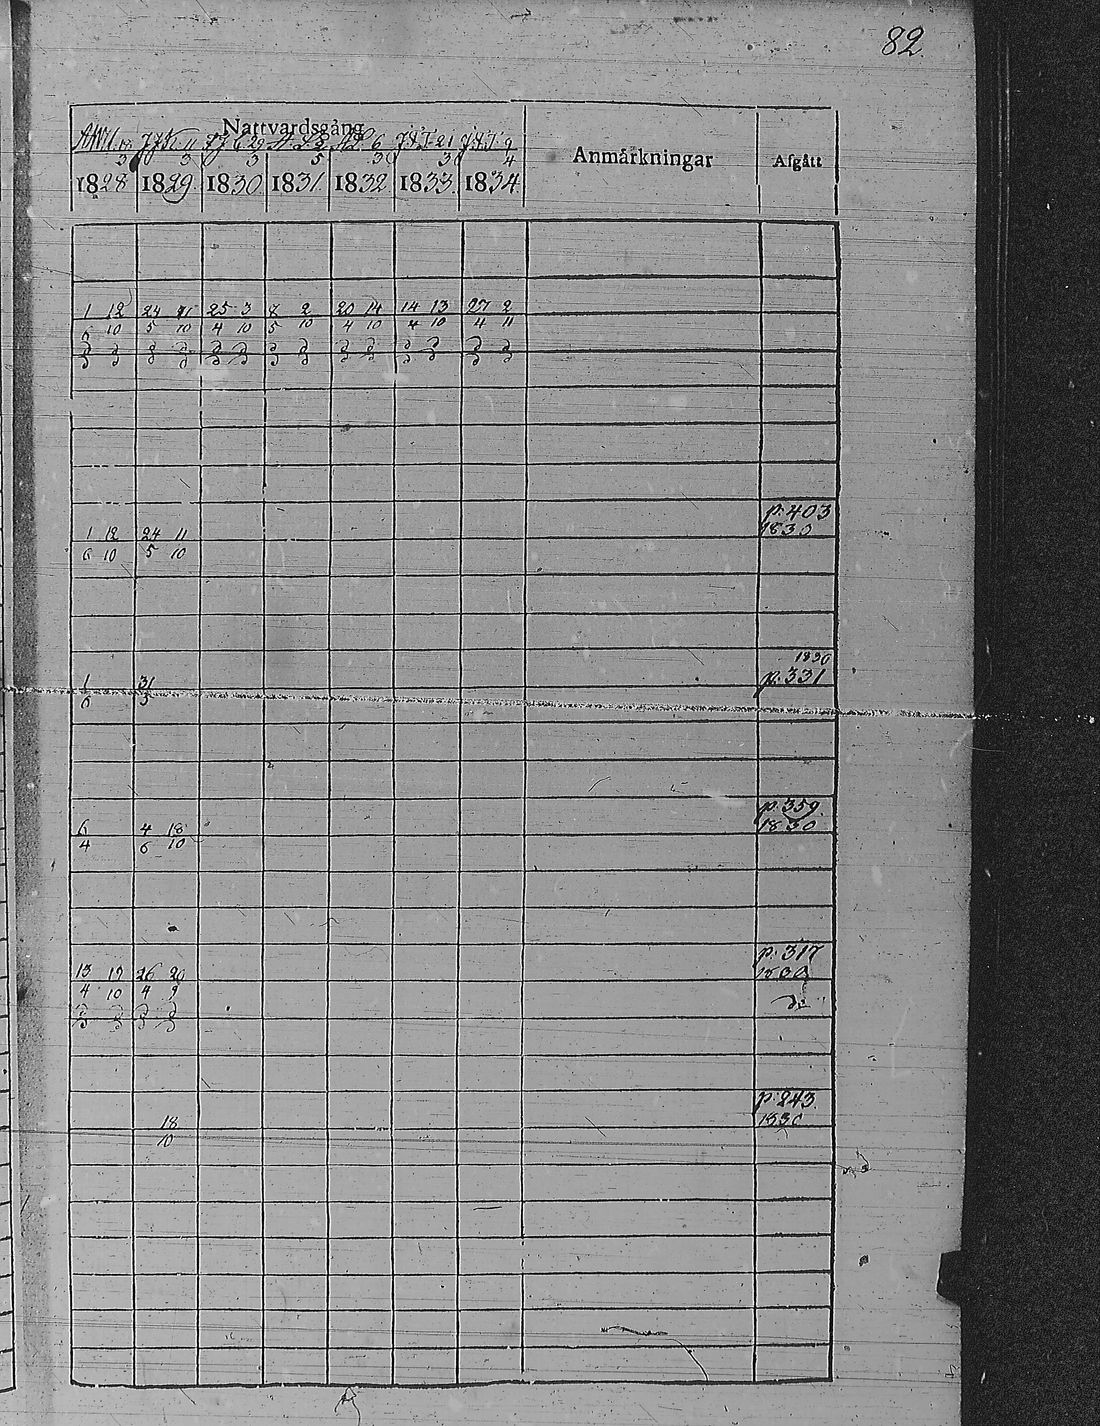 82
Nattvardsgång
11 6 29 6 21 9
3 3 3 5 3 3 4
Anmärkningar Afgått
1828 1829 1830 1831 1832 1833 1834
1 12 24 11 25 3 8 2 20 14 14 13 27 2
6 10 5 10 4 10 5 10 4 10 4 10 4 11
p. 403
1 12 24 11 1830
6 10 5 10
1830
1 31 p. 331
6 5
p. 359
6 4 18 1830
4 6 10
p. 317
13 19 26 20 1830
4 10 4 9
p. 243
18 1830
10